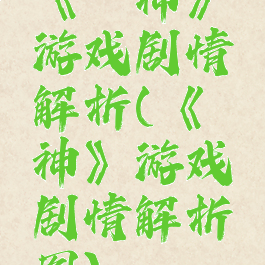 《 神》
游戏剧情
解析(《
神》游戏
剧情解析
图)